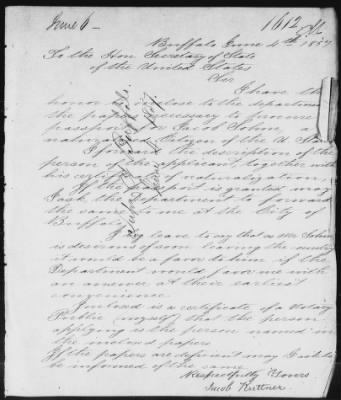 June 6 - 1612
Buffalo June 4th 1857
To the Hon Secretary of State
of the United States
Sir
I have the
honor to inclose to the department
the papers necessary to procure
passport for Jacob Sohm, a
naturalized Citizen of the U States
I forward description of the
person of the applicant together with
his certificate of naturalization
If the passport is granted may
I ask the department to forward
the same to me at the City of
Buffalo
I beg leave to say that as Mr Sohm
is desirous of soon leaving the country
it would be a favor to him if the
Department would favor me with
an answer at their earliest
convenience
Inclosed is a certificate of a Notary
Public (myself) that the person
applying is the person named in
the inclosed papers
If the papers are deficient may I ask to
be informed of the same
Respectfully Yours
Jacob Kuttner